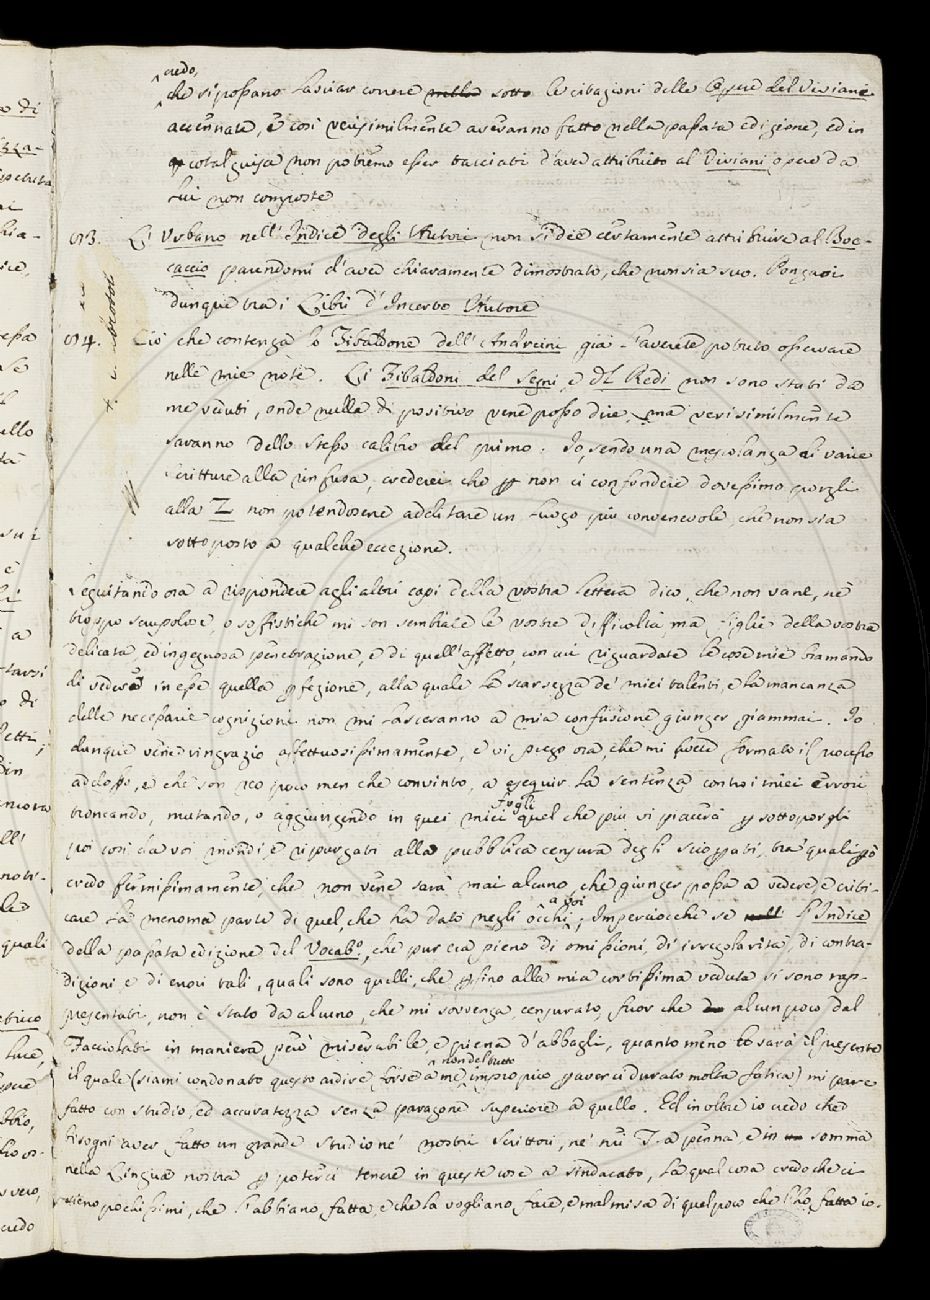 credo,
che si possano lasciar correre nello sotto le citazioni delle Opere del Viviani
accennate, e così verisimilmente averanno fatto nella passata edizione, ed in
cotal guisa non potremo esser tacciati d'aver attribuito al Viviani opere da
lui non composte
93. L'Urbano nell'Indice degli Autori non si dee certamente attribuire al Boc-
caccio parendomi d'aver chiaramente dimostrato, che non sia suo. Pongasi
dunque tra i Libri d'Incerto Autore
94. Ciò che contenga lo Zibaldone dell'Andreini già l'averete potuto osservare
nelle mie note. Li Zibaldoni del Segni, e del Redi non sono stati da
me veduti, onde nulla di positivo vene posso dire, ma verisimilmente
saranno dello stesso calibro del primo. Io, sendo una mescolanza di varie
scritture alla rinfusa, crederei che p non ci confondere dovessimo porgli
alla Z non potendosene additare un luogo più convenevole, che non sia
sottoposto a qualche eccezione.
Seguitando ora a rispondere agli altri capi della vostra lettera dico, che non vane, nè
troppo scrupolose, o soffistiche mi son sembrate le vostre difficoltà, ma figlie della vostra
delicata, ed ingegnosa penetrazione, e di quell'affetto, con cui riguardate le cose mie bramando
di vedere in esse quella pfezione, alla quale la scarsezza de' miei talenti, e la mancanza
delle necessarie cognizioni non mi lasceranno a mia confusione giunger giammai. Io
dunque vene ringrazio affettuosissimamente, e vi prego ora, che mi avete formato il processo
addosso, e che son reo poco men che convinto, a eseguir la sentenza contro i miei errori
fogli
troncando, mutando, o aggiungendo in quei miei quel che più vi piacerà p sottoporgli
poi così da voi mondi, e ripurgati alla pubblica censura degli sciopati, tra quali pò
credo fermissimamente, che non vene sarà mai alcuno, che giunger possa a vedere, e criti-
a voi
care la menoma parte di quel, che ha dato negli occhi; Imperciocchè se nell l'Indice
della passata edizione del Vocab.o, che pur era pieno di omissioni, di irregolarità, di contra-
dizioni, e di errori tali, quali sono quelli, che pfino alla mia cortissima veduta si sono rap-
presentati, non è stato da alcuno, che mi sovvenga, censurato, fuor che da alcun poco dal
Facciolati in maniera però miserabile, e piena d'abbagli, quanto meno lo sarà il presente
non del tutto
il quale (siami condonato questo ardire forse a me improprio p averci durato molta fatica) mi pare
fatto con studio, ed accuratezza senza paragone superiore a quello. Ed inoltre io credo che
bisogni aver fatto un grande studio ne' nostri scrittori, ne' mii T. a penna, e in somma
nella Lingua nostra p poterci tenere in queste cose a sindacato, la qual cosa credo che ci
sieno pochissimi, che l'abbiano fatta, e che la vogliano fare, e malmisa di quel poco che l'ho fatta io.